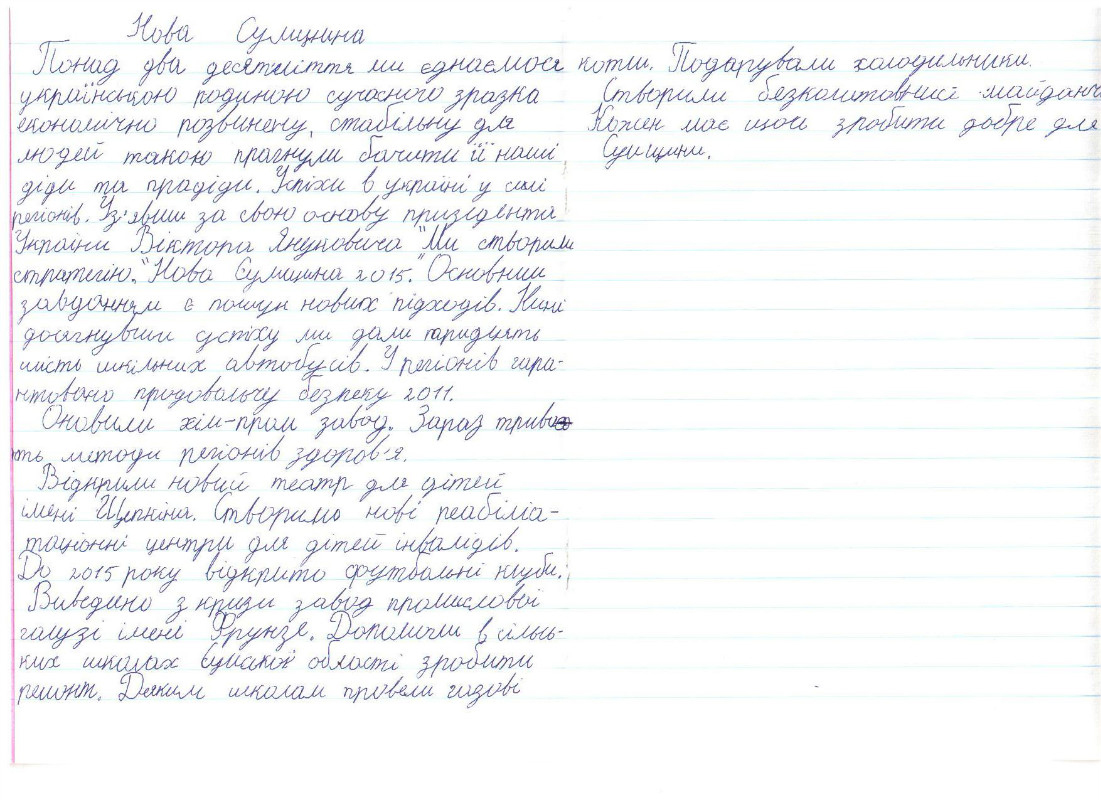 Нова Сумщина
Понад два десятиліття ми єднаємося
українською родиною сучасного зразка
економічно розвинену, стабільну для
людей такою прагнули бачити її наші
діди та прадіди. Успіхи в україні у силі
регіонів. Уз'явши за свою основу призідента
України Віктора Януковича "Ми створили
стратегію." "Нова Сумщина 2015." Основним
завданням є пошук нових підходів. Нині
досягнувши успіху ми дали тридцять
шість шкільних автобусів. У регіонів гара-
нтовано продовольчу безпеку 2011.
Оновили хім-пром завод. Зараз трива
ть методи регіонів здоров'я.
Відкрили новий театр для дітей
імені Щепкіна. Створимо нові реабіліа-
таціонні центри для дітей інвалідів.
До 2015 року відкрито футбольні клуби.
Виведено з кризи завод промислової
галузі імені Фрунзе. Допомогли в сільсь-
ких школах Сумскої області зробити
ремонт. Деяким школам провели газові
котли. Подарували холодильники.
Створили безкоштовний майданч
Кожен має щось зробити добре для
Сумщини.